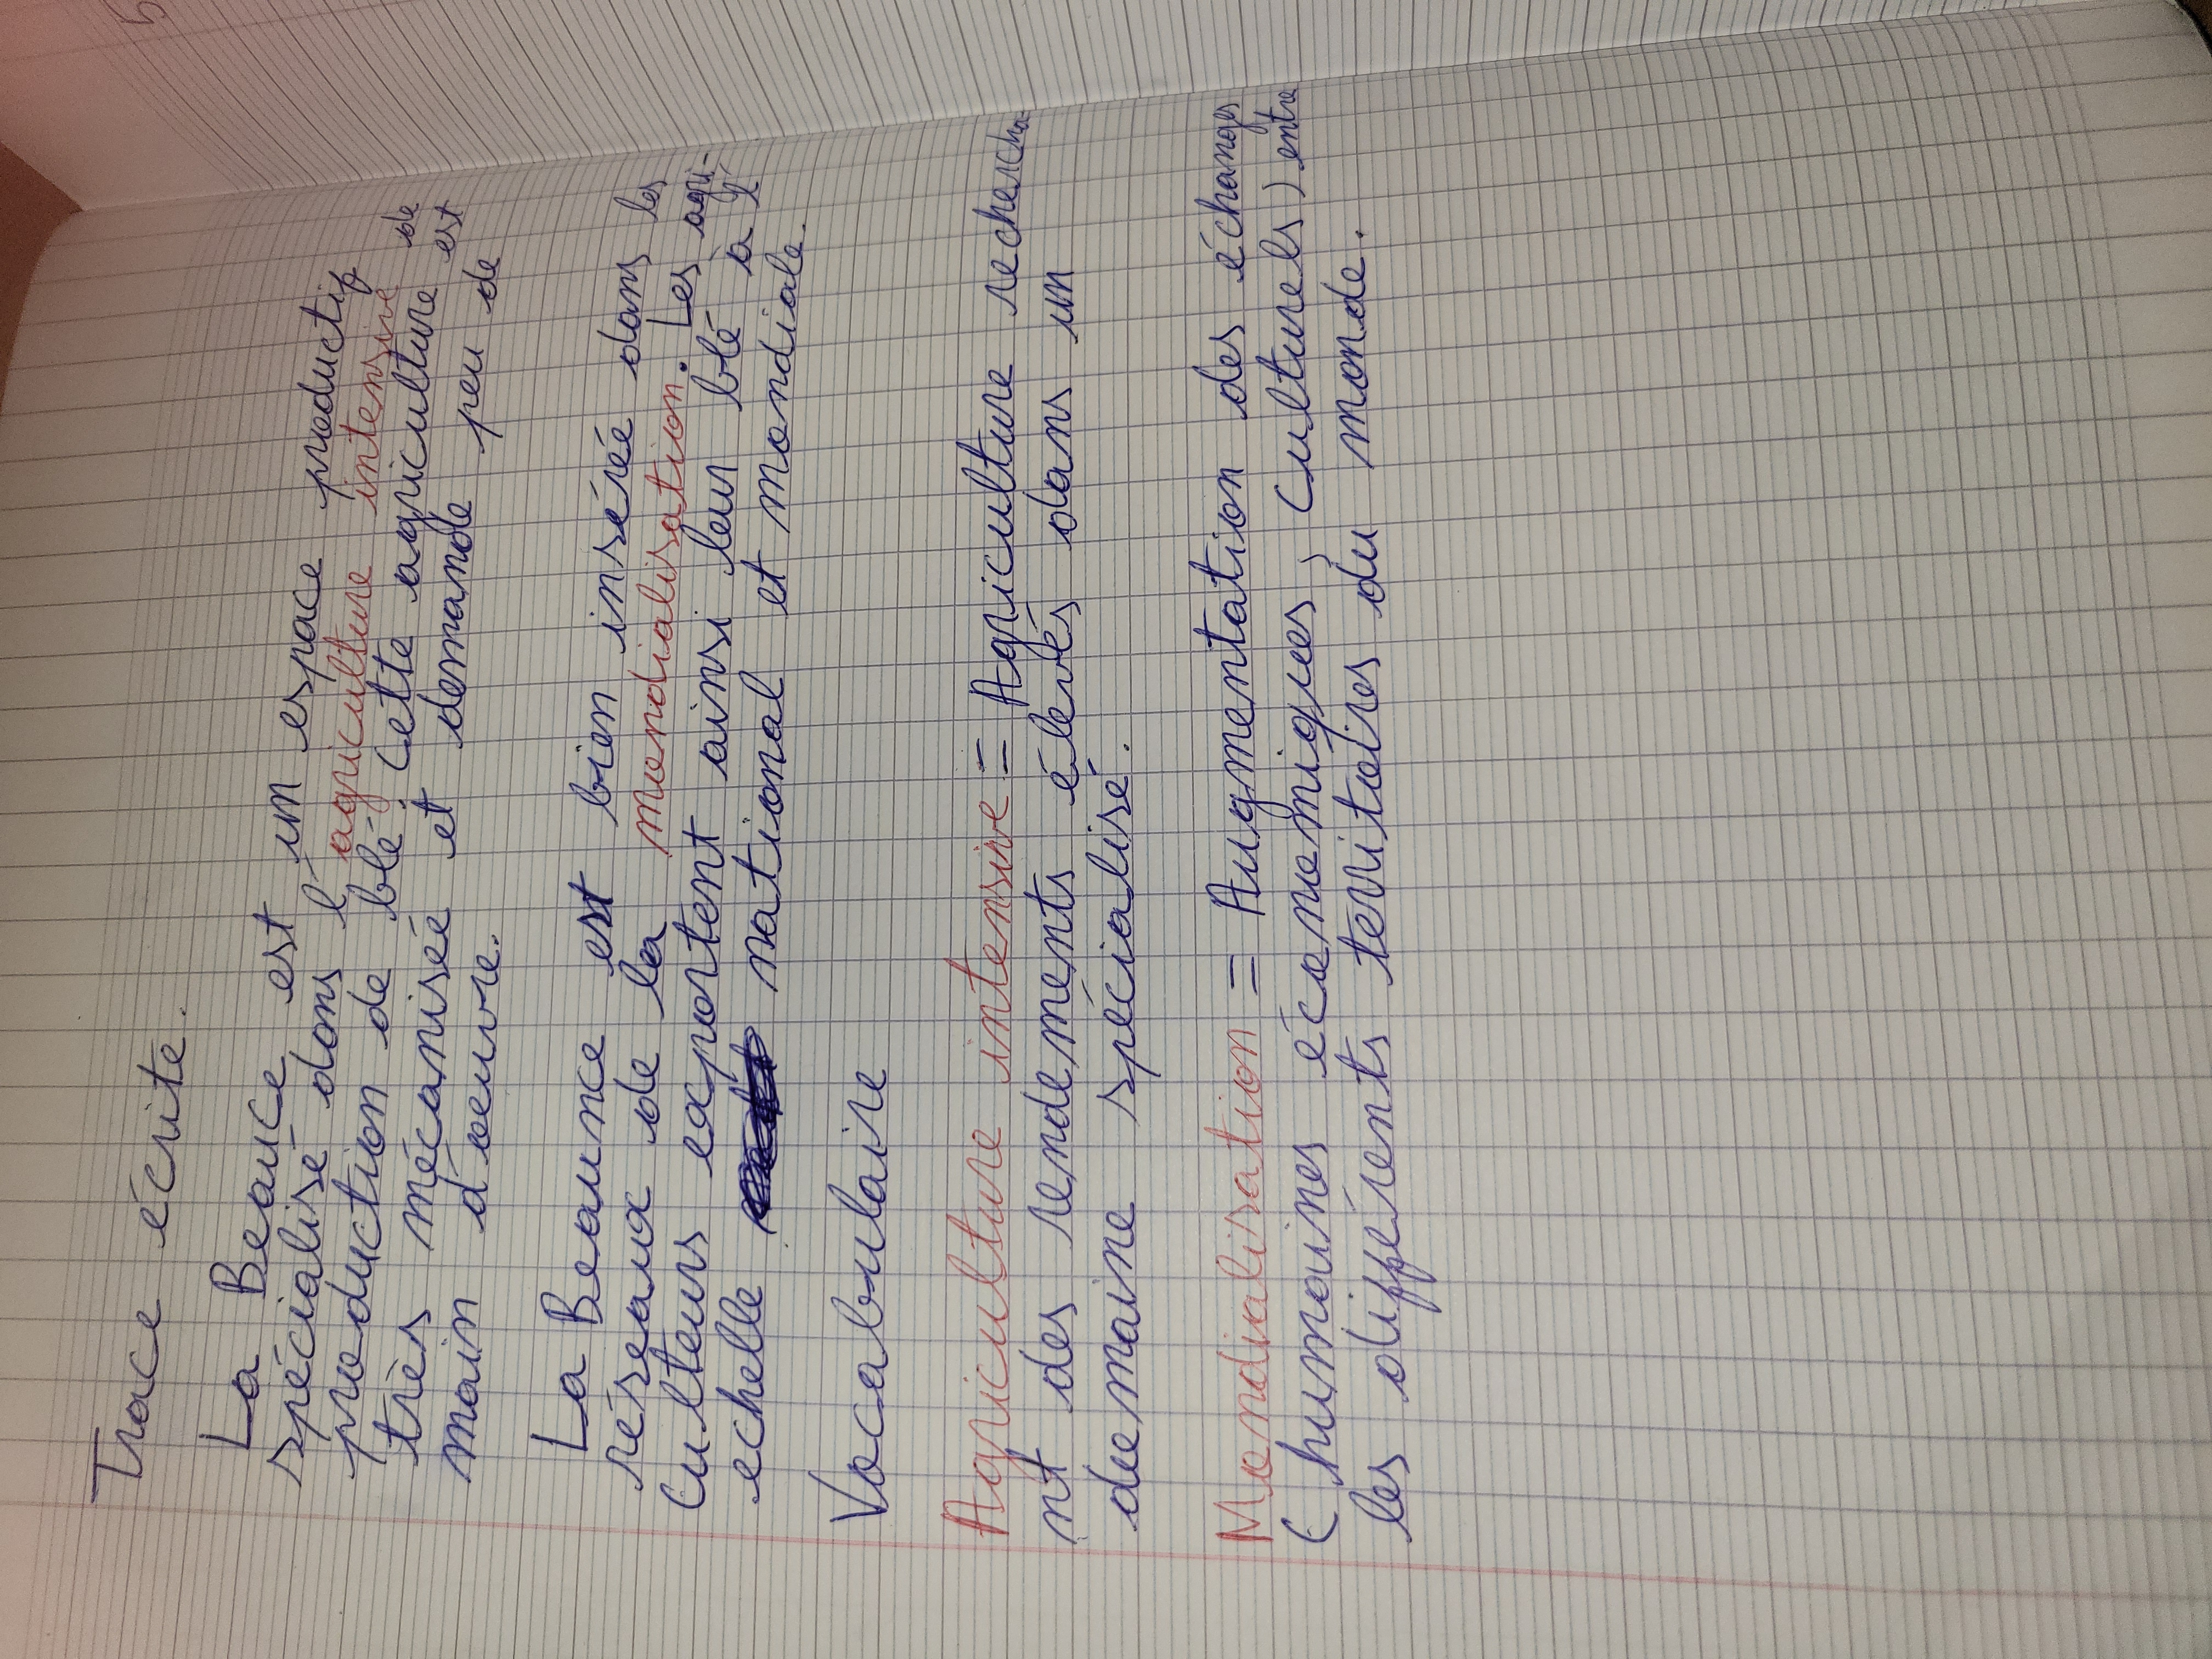 Trace écrite.
La Beauce est un espace productif
spécialisé dans l'agriculture intensive de
production de blé. Cette agriculture est
très mécanisée et demande peu de
main d'oeuvre.
La Beaunce est bien insérée dans les
réseaux de la mondialisation. Les agri-
culteurs exportent ainsi leur blé à l'
echelle national et mondiale.
Vocabulaire
Agriculture intensive = Agriculture rechercha-
nt des rendements élevés dans un
domaine spécialisé.
Mondialisation = Augmentation des échanges
(humaines économiques, culturels) entre
les différents territoires du monde.